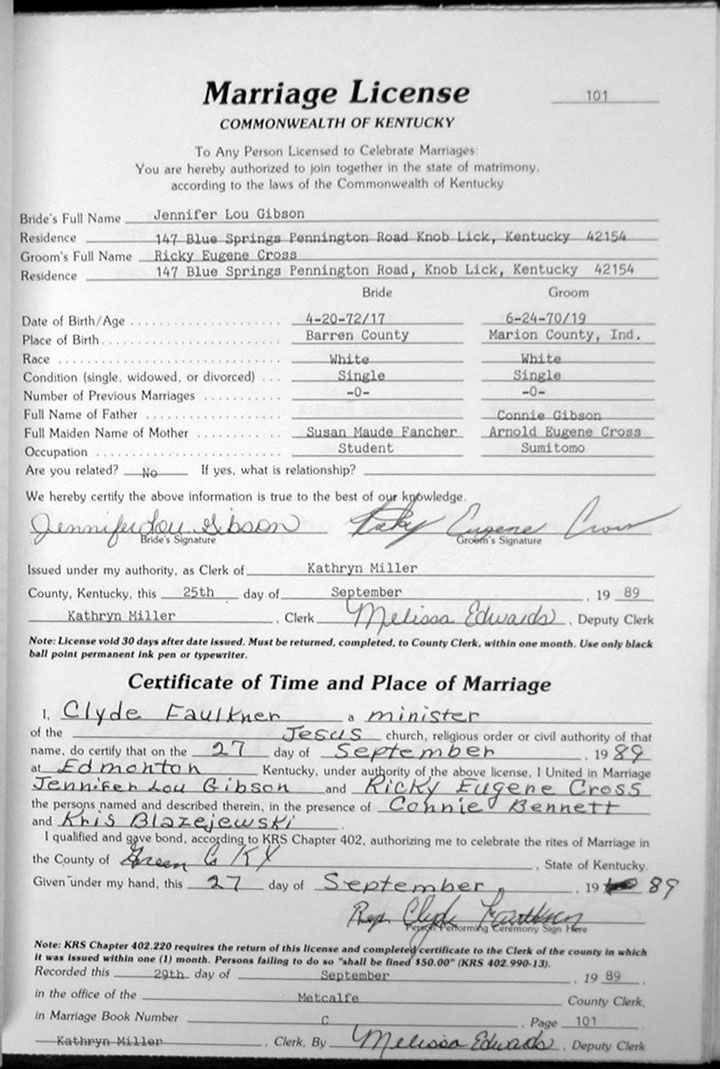 Marriage License 101
COMMONWEALTH OF KENTUCKY
To Any Person Licensed to Celebrate Marriages:
You are hereby authorized to join together in the state of matrimony,
according to the laws of the Commonwealth of Kentucky
Bride's Full Name Jennifer Lou Gibson
Residence 147 Blue Springs Pennington Road Knob Lick, Kentucky 42154
Groom's Full Name Ricky Eugene Cross
Residence 147 Blue Springs Pennington Road, Knob Lick, Kentucky 42154
Bride Groom
Date of Birth/Age 4-20-72/17 6-24-70/19
Place of Birth Barren County Marion County, Ind.
Race White White
Condition (single, widowed, or divorced) Single Single
Number of Previous Marriages -0- -0-
Full Name of Father Connie Gibson
Full Maiden Name of Mother Susan Maude Fancher Arnold Eugene Cross
Occupation Student Sumitomo
Are you related? No If yes, what is relationship?
We hereby certify the above information is true to the best of our knowledge.
Jennifer Lou Gibson Ricky Eugene Cross
Bride's Signature Groom's Signature
Issued under my authority, as Clerk of Kathryn Miller
County, Kentucky, this 25th day of September, 19 89
Kathryn Miller, Clerk Melissa Edwards, Deputy Clerk
Note: License void 30 days after date issued. Must be returned, completed, to County Clerk, within one month. Use only black
ball point permanent ink pen or typewriter.
Certificate of Time and Place of Marriage
I, Clyde Faulkner a minister
of the Jesus church, religious order or civil authority of that
name, do certify that on the 27 day of September, 19 89
at Edmonton Kentucky, under authority of the above license, I United in Marriage
Jennifer Lou Gibson and Ricky Eugene Cross
the persons named and described therein, in the presence of Connie Bennett
and Kris Blazejewski.
I qualified and gave bond, according to KRS Chapter 402, authorizing me to celebrate the rites of Marriage in
the County of Green Co KY, State of Kentucky.
Given under my hand, this 27 day of September, 19 89
Clyde Faulkner
Person Performing Ceremony Sign Here
Note: KRS Chapter 402.220 requires the return of this license and completed certificate to the Clerk of the county in which
it was issued within one (1) month. Persons failing to do so "shall be fined $50.00" (KRS 402.990-13).
Recorded this 29th day of September, 19 89.
in the office of the Metcalfe County Clerk,
in Marriage Book Number C, Page 101
Kathryn Miller, Clerk, By Melissa Edwards, Deputy Clerk